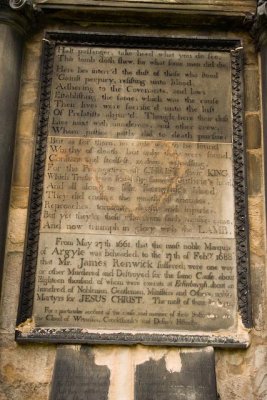 Halt passenger, take heed what you do see,
This tomb doth shew, for what some men did die.
Here lies interr'd the dust of those who stood
'Gainst perjury, resisting unto blood;
Adhering to the Covenants, and laws
Establishing the same: which was the cause
Their lives were sacrific'd unto the lust
Of Prelatists abjur'd. Though here their dust
Lies mixt with murderers, and other crew,
Whom justice justly did to death pursue:
But as for them, no cause was to be found
Worthy of death, but only they were found,
Constant and stedfast, zealous, witnessing,
For the Prerogatives of CHRIST their KING.
Which Truths were
And all along to
They did endure the wrath of enemies,
Reproaches, torments, deaths and injuries.
But yet they're those who from such troubles came,
And now triumph in glory with the LAMB.
From May 27th 1661. that the most noble Marquis
of Argyle was beheaded, to the 17th of Feby. 1688
that Mr. James Renwick suffered; were one way
or other Murdered and Destroyed for the same Cause about
Eighteen thousand of whom were execute at Edinburgh about an
hundred of Noblemen, Gentlemen, Ministers and Others, noble
Martyrs for JESUS CHRIST. The most of them lie here.
For a particular account of the cause and manner of their Sufferings